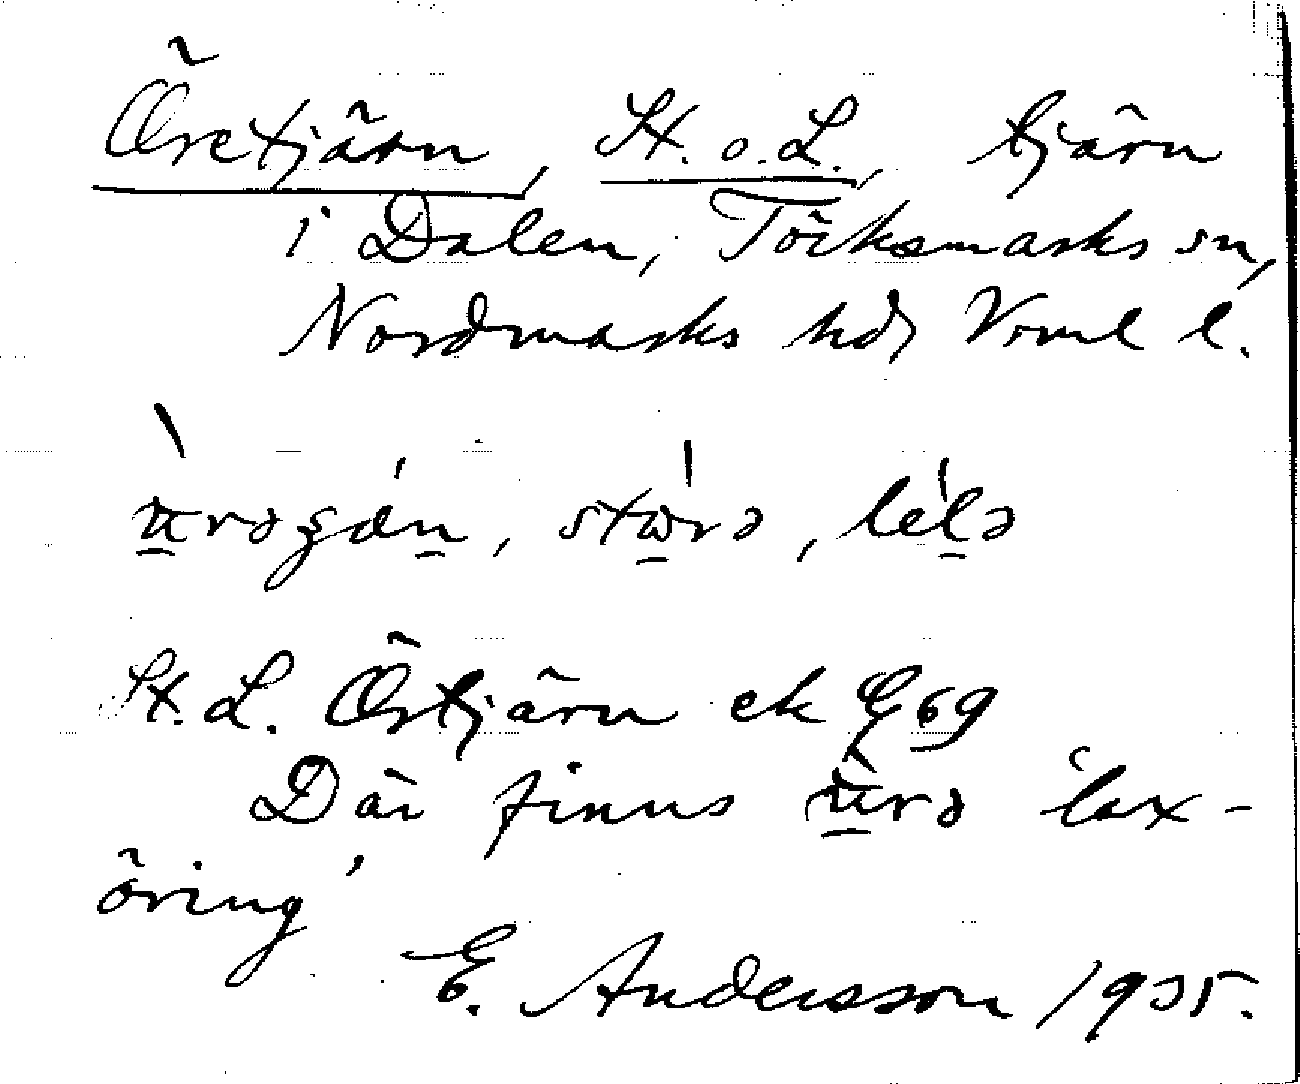 Öretjärn, St. o. L., tjärn
i Dalen, Töcksmarks sn,
Nordmarks hd, Vrml l.
St. L. Örtjärn ek E69
Där finns ùrə 'lax-
öring'
E. Andersson 1935.